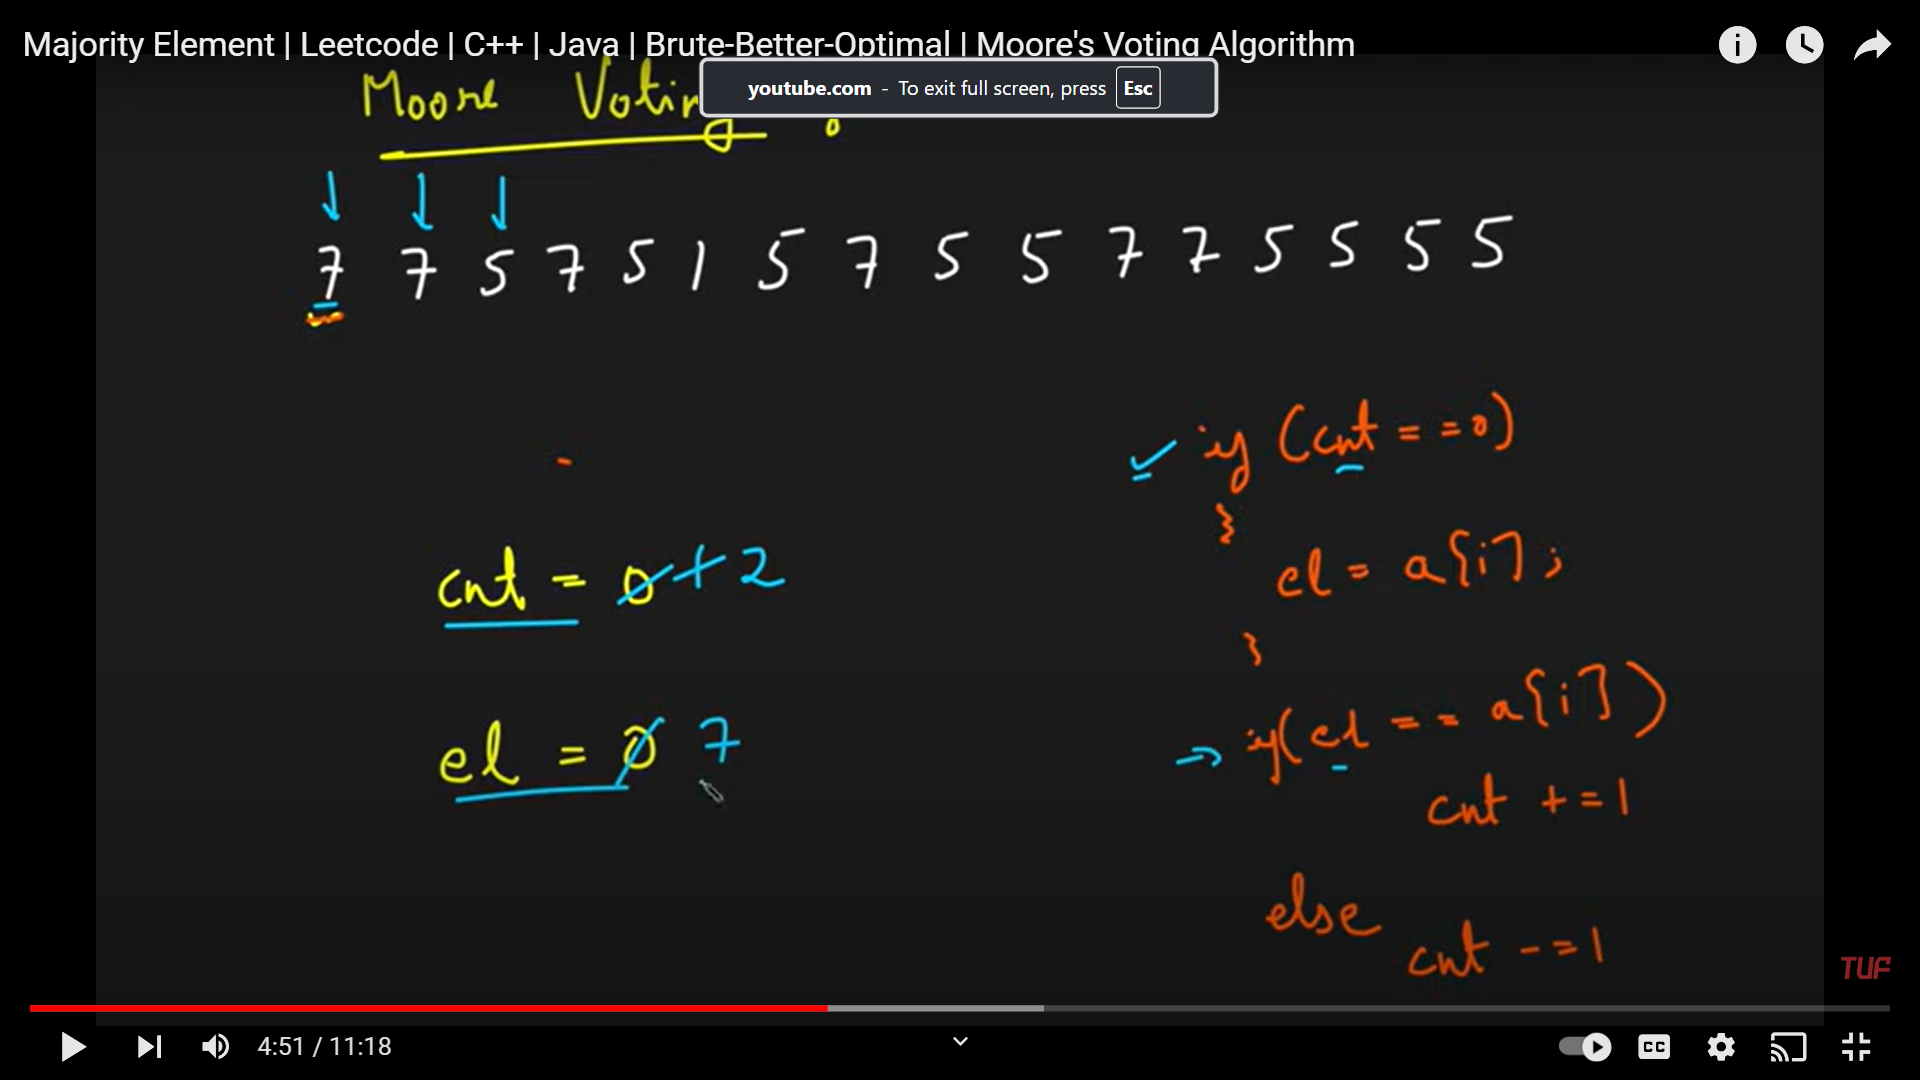 Majority Element | Leetcode | C++ | Java | Brute-Better-Optimal | Moore's Voting Algorithm
youtube.com - To exit full screen, press Esc
Moore Voting
7 7 5 7 5 1 5 7 5 5 7 7 5 5 5 5
if (cnt == 0)
{
el = a[i];
}
cnt = 0 1 2
el = 0 7
if(el == a[i])
cnt += 1
else
cnt -= 1
TUF
4:51 / 11:18
CC